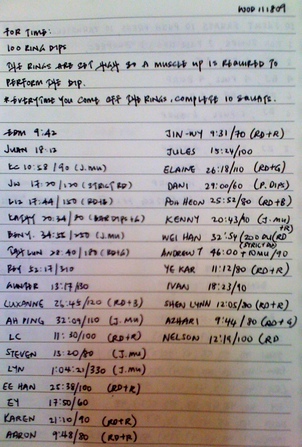 WOD 111809
FOR TIME:
100 RING DIPS
THE RINGS ARE SET HIGH SO A MUSCLE UP IS REQUIRED TO
PERFORM THE DIP.
* EVERYTIME YOU COME OFF THE RINGS, COMPLETE 10 SQUATS.
9:42
JUAN 18:12
LC 10:58 /90 (J.MU)
JW 17:20/120 (STRICT RD)
LIZ 17:44/150
20:34/70
34:55/250 (J.MU)
28:40/180
52:17/310
13:17/30
LUXANNE 26:45/120 (RD+B)
AH PING 32:09/110 (J.MU)
LC 11:20/100 (RD+R)
STEVEN 13:20/80 (J.MU)
LYN 1:04:21/330 (J.MU)
EE HAN 25:38/100 (RD+R)
EY 17:50/60
KAREN 21:10/90 (RD+R)
AARON 9:48/80 (RD+R)
JIN-WY 9:31/70 (RD+R)
JULES 15:24/100
ELAINE 26:18/110 (RD+G)
DANI 29:00/60 (P. DIPS)
POH HEON 25:52/80 (RD+B)
KENNY 20:43/90 (J.MU)
WEI HAN 32:54/200
ANDREW T 46:00 + 10MU/90
YE KAR 11:12/80 (RD+R)
IVAN 18:23/90
SHEN LYNN 12:05/30 (RD+R)
AZHARI 9:44/80 (RD+G)
NELSON 12:19/100 (RD